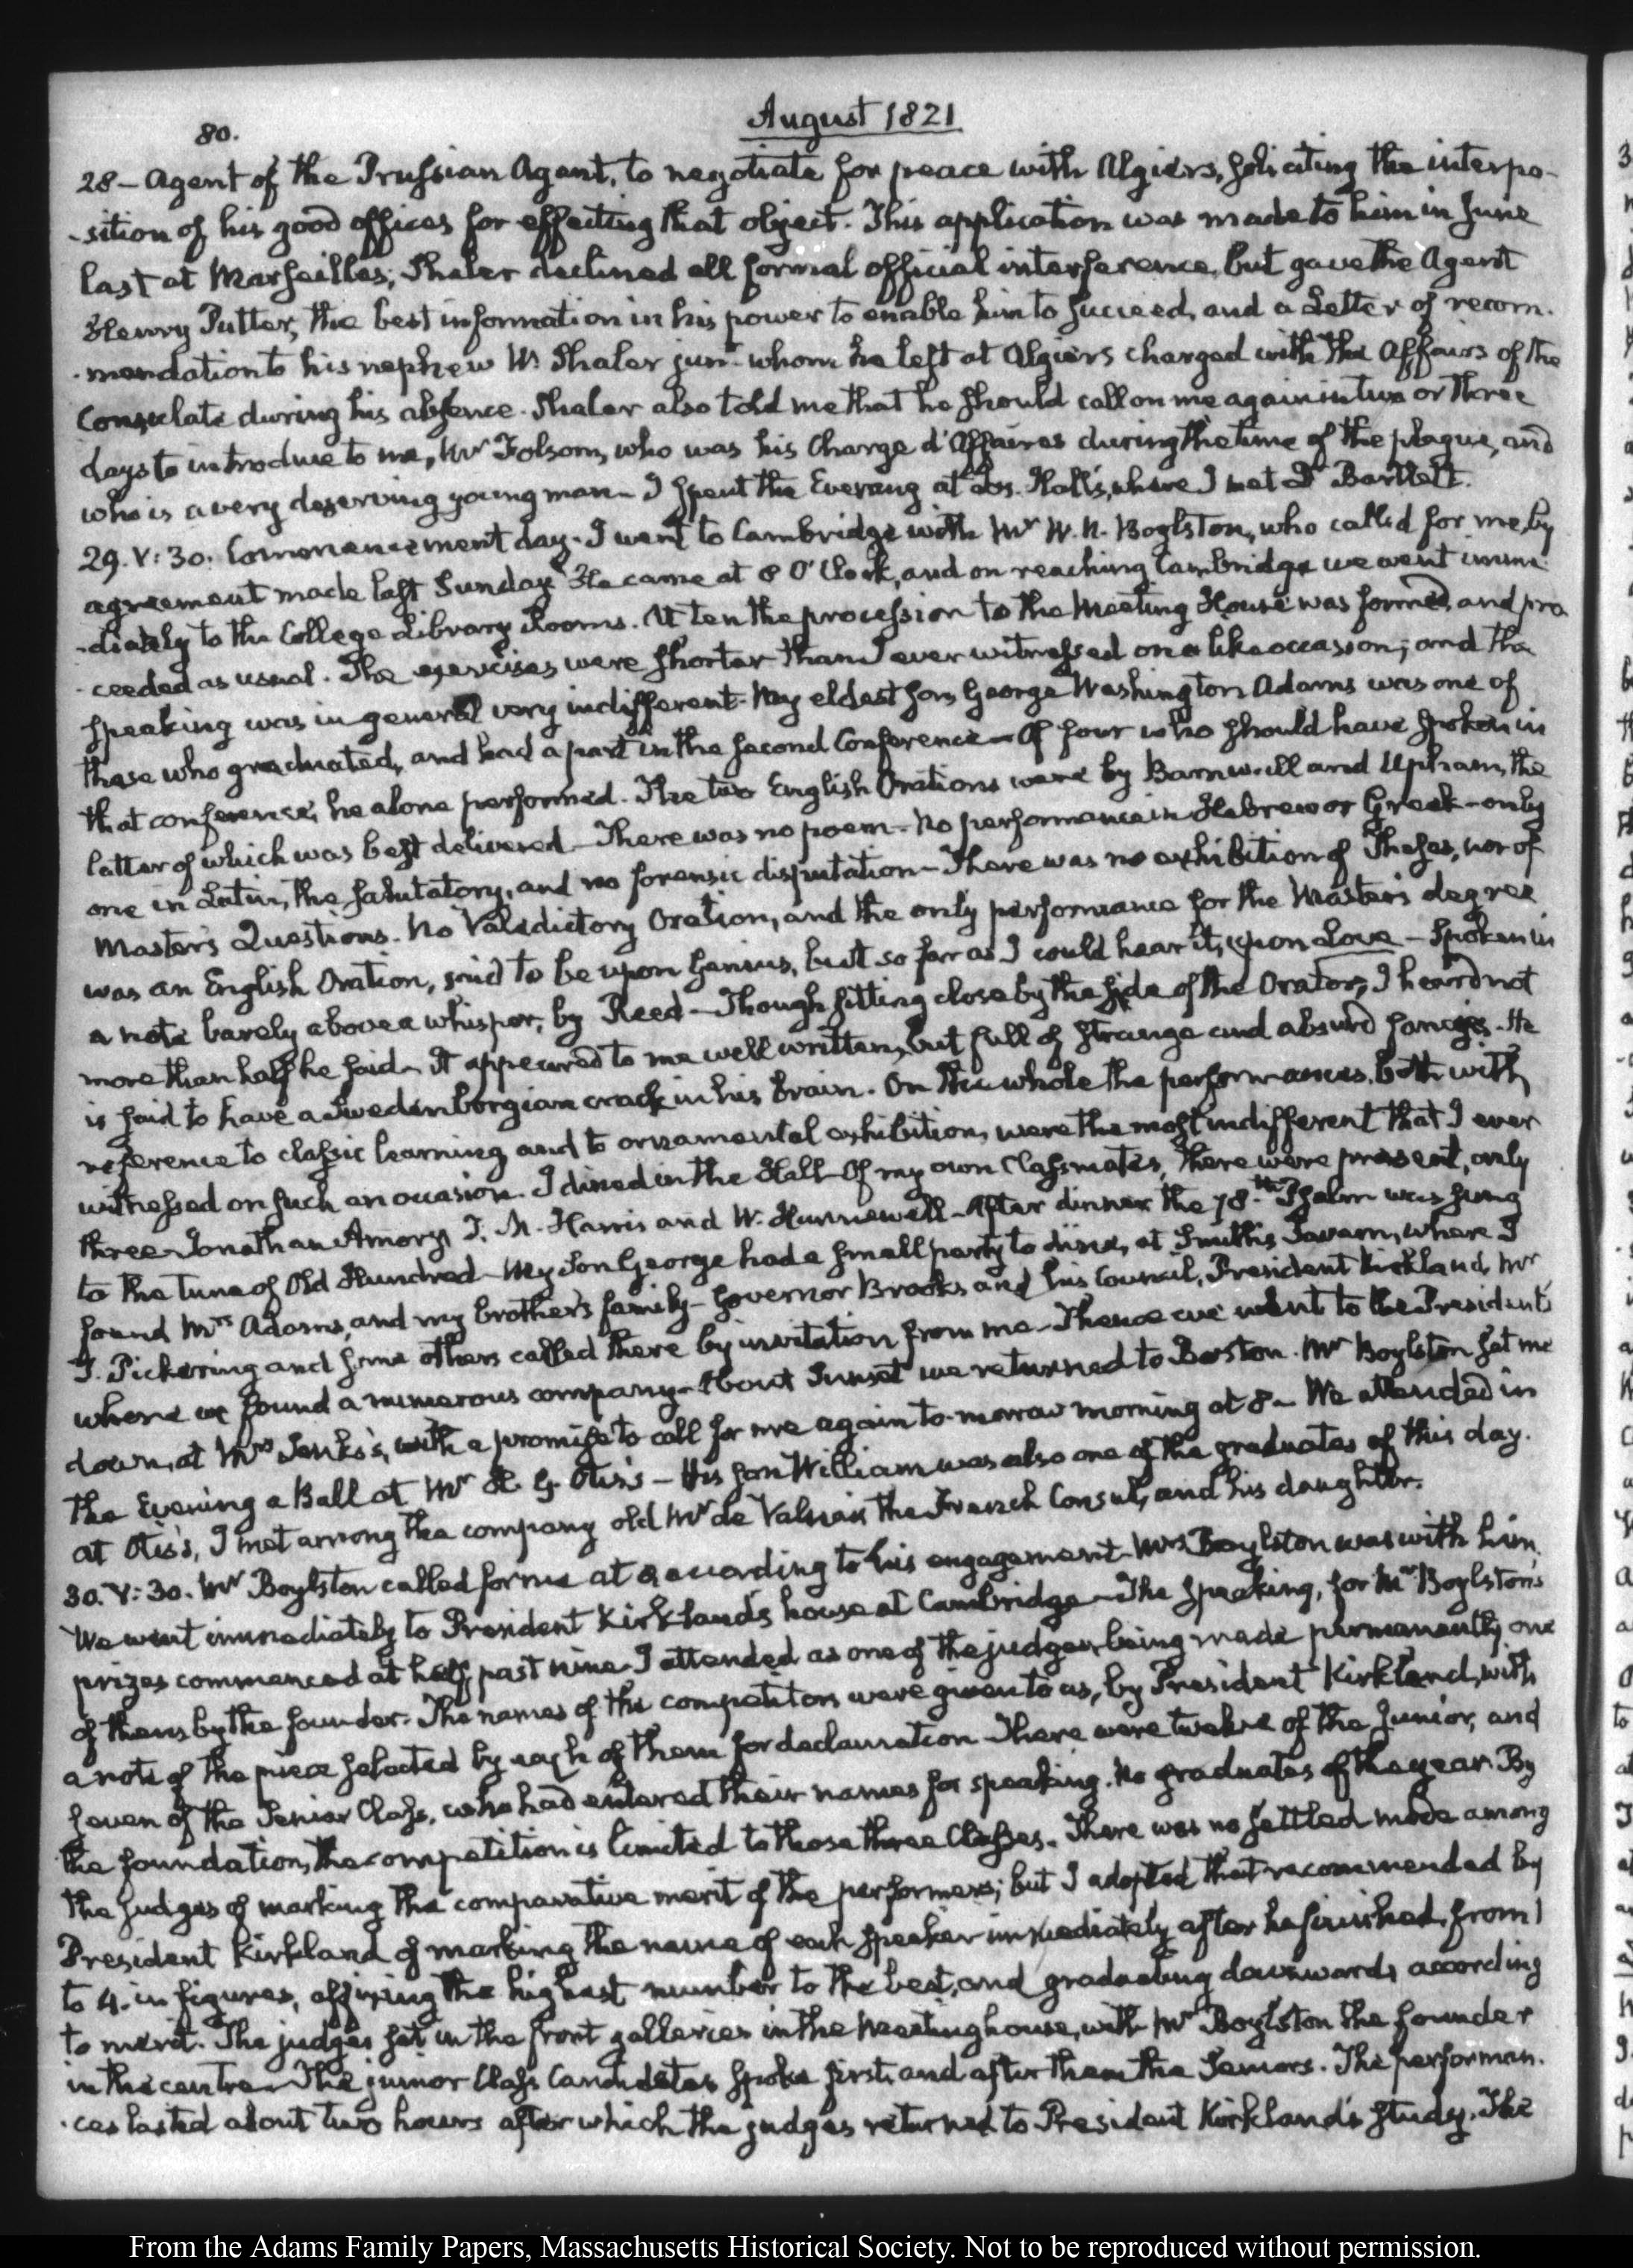 80.
August 1821
28 – Agent of the Prussian Agent, to negotiate for peace with Algiers, soliciting the interpo-
-sition of his good offices for effecting that object. This application was made to him in June
last at Marseilles; Shaler declined all formal official interference, but gave the Agent
Henry Putter, the best information in his power to enable him to succeed, and a Letter of recom-
-mendation to his nephew W. Shaler junr. whom he left at Algiers charged with the Affairs of the
Consulate during his absence. Shaler also told me that he should call on me again in two or three
days to introduce to me, Mr Folsom, who was his Charge d'Affaires during the time of the plague, and
who is a very deserving young man – I spent the Evening at Jos. Hall's, where I met Dr Bartlett.
29. V:30. Commencement day. I went to Cambridge with Mr W. N. Boylston, who called for me, by
agreement made last Sunday. He came at 8 O'Clock, and on reaching Cambridge we went imme-
-diately to the College Library Rooms. At ten the procession to the Meeting House was formed, and pro
-ceeded as usual. The exercises were shorter than I ever witnessed on a like occasion; and the
speaking was in general very indifferent. My eldest son George Washington Adams was one of
those who graduated, and had a part in the second Conference – Of four who should have spoken in
that conference, he alone performed. The two English Orations were by Barnwell and Upham, the
latter of which was best delivered – There was no poem – No performance in Hebrew or Greek – only
one in Latin, the salutatory, and no forensic disputation – There was no exhibition of Theses, nor of
Master's Questions. No Valedictory Oration, and the only performance for the Master's degree
was an English Oration, said to be upon Genius, but so far as I could hear it, upon Love – Spoken in
a note barely above a whisper, by Reed – Though sitting close by the side of the Orator, I heard not
more than half he said – It appeared to me well written, but full of strange and absurd fancies. He
is said to have a Swedenborgian crack in his brain. On the whole the performances, both with
reference to classic learning and to ornamental exhibition, were the most indifferent that I ever
witnessed on such an occasion. I dined in the Hall – Of my own Classmates, there were present, only
three – Jonathan Amory, T. M. Harris and W. Hunnewell – After dinner the 78.th Psalm was sung
to the tune of Old Hundred – My Son George had a small party to dine, at Smith's Tavern, where I
found Mrs Adams, and my brother's family – Governor Brooks and his Council, President Kirkland, Mr
T. Pickering and some others called there by invitation from me – Thence we went to the President's
where we found a numerous company – About Sunset we returned to Boston. Mr Boylston set me
down, at Mrs Jenks's, with a promise to call for me again to-morrow morning at 8 – We attended in
the Evening a Ball at Mr H. G. Otis's – His son William was also one of the graduates of this day.
at Otis's, I met among the company old Mr de Valnais the French Consul, and his daughter.
30. V:30. Mr Boylston called for me at 8 according to his engagement – Mrs Boylston was with him.
We went immediately to President Kirkland's house at Cambridge – The Speaking, for Mr Boylston's
prizes commenced at half past nine – I attended as one of the judges, being made permanently one
of them by the founder. The names of the competitors were given to us, by President Kirkland, with
a note of the piece selected by each of them for declamation – There were twelve of the Junior, and
seven of the Senior Class, who had entered their names for speaking. No graduates of the year. By
the foundation, the competition is limited to those three Classes. There was no settled mode among
the judges of marking the comparative merit of the performers; but I adopted that recommended by
President Kirkland of marking the name of each speaker immediately after he finished, from 1
to 4. in figures, affixing the highest number to the best, and graduating downwards according
to merit. The judges sat in the front galleries in the Meeting house, with Mr Boylston the founder
in the centre – The junior Class Candidates spoke first, and after them the Seniors. The performan-
-ces lasted about two hours after which the judges returned to President Kirkland's study. The
From the Adams Family Papers, Massachusetts Historical Society. Not to be reproduced without permission.